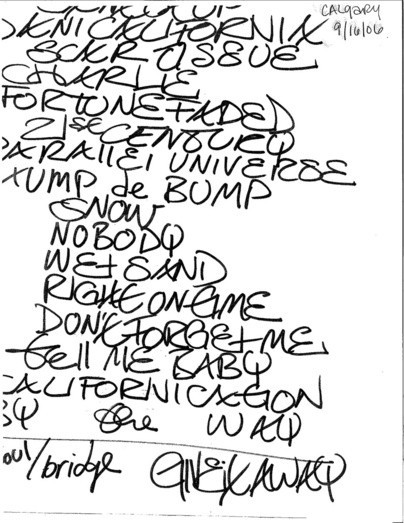 CALGARY
9/16/06
DANI CALIFORNIA
SCAR TISSUE
CHARLIE
FORTUNE FADED
21st CENTURY
PARALLEL UNIVERSE
de BUMP
SNOW
NOBODY
WET SAND
RIGHT ON TIME
DON'T FORGET ME
tell ME BABY
CALIFORNICATION
BY the WAY
oul/bridge GIVE IT AWAY